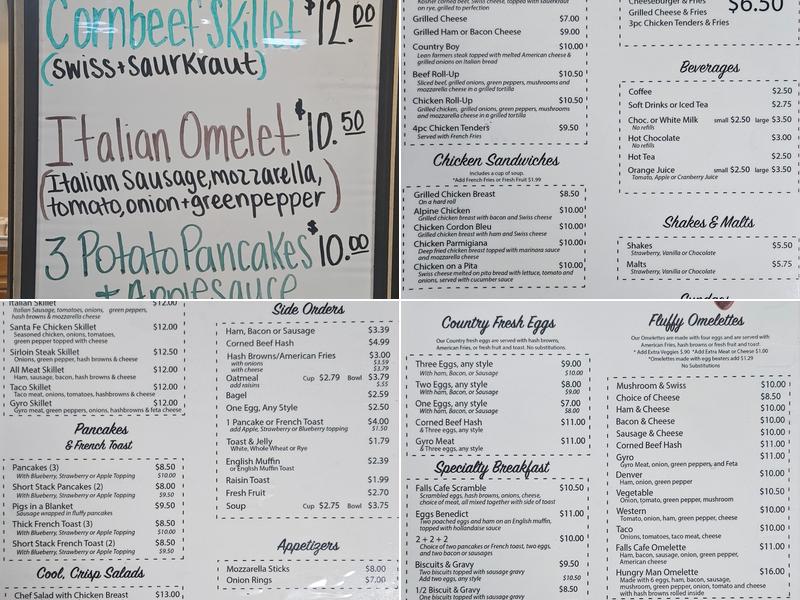 Cornbeef Skillet $12.00
(swiss+saurkraut)
Italian Omelet $10.50
(Italian Sausage, mozzarella,
tomato, onion+greenpepper)
3 Potato Pancakes $10.00
+ Applesauce
Kosher corned beef, Swiss cheese, topped with sauerkraut
on rye, grilled to perfection
Grilled Cheese $7.00
Grilled Ham or Bacon Cheese $9.00
Country Boy $10.00
Lean farmers steak topped with melted American cheese &
grilled onions on Italian bread
Beef Roll-Up $10.50
Sliced beef, grilled onions, green peppers, mushrooms and
mozzarella cheese in a grilled tortilla
Chicken Roll-Up $10.50
Grilled chicken, grilled onions, green peppers, mushrooms
and mozzarella cheese in a grilled tortilla
4pc Chicken Tenders $9.50
Served with French Fries
Chicken Sandwiches
Includes a cup of soup.
*Add French Fries or Fresh Fruit $1.99
Grilled Chicken Breast $8.50
On a hard roll
Alpine Chicken $10.00
Grilled chicken breast with bacon and Swiss cheese
Chicken Cordon Bleu $10.00
Grilled chicken breast with ham and Swiss cheese
Chicken Parmigiana $10.00
Deep fried chicken breast topped with marinara sauce
and mozzarella cheese
Chicken on a Pita $10.00
Swiss cheese melted on pita bread with lettuce, tomato and
onions, served with cucumber sauce
Cheeseburger & Fries
Grilled Cheese & Fries $6.50
3pc Chicken Tenders & Fries
Beverages
Coffee $2.50
Soft Drinks or Iced Tea $2.75
Choc. or White Milk small $2.50 large $3.50
No refills
Hot Chocolate $3.00
No refills
Hot Tea $2.50
Orange Juice small $2.50 large $3.50
Tomato, Apple or Cranberry Juice
Shakes & Malts
Shakes $5.50
Strawberry, Vanilla or Chocolate
Malts $5.75
Strawberry, Vanilla or Chocolate
Italian Skillet $12.00
Italian Sausage, tomatoes, onions, green peppers,
hash browns & mozzarella cheese
Santa Fe Chicken Skillet $12.00
Seasoned chicken, onions, tomatoes,
green pepper topped with cheese
Sirloin Steak Skillet $12.50
Onions, green pepper, hash browns & cheese
All Meat Skillet $12.00
Ham, sausage, bacon, hash browns & cheese
Taco Skillet $12.00
Taco meat, onions, tomatoes, hashbrowns & cheese
Gyro Skillet $12.00
Gyro meat, green peppers, onions, hashbrowns & feta cheese
Pancakes
& French Toast
Pancakes (3) $8.50
With Blueberry, Strawberry or Apple Topping $10.00
Short Stack Pancakes (2) $8.00
With Blueberry, Strawberry or Apple Topping $9.50
Pigs in a Blanket $9.50
Sausage wrapped in fluffy pancakes
Thick French Toast (3) $8.50
With Blueberry, Strawberry or Apple Topping $10.00
Short Stack French Toast (2) $8.50
With Blueberry, Strawberry or Apple Topping $9.50
Cool, Crisp Salads
Chef Salad with Chicken Breast $13.00
Side Orders
Ham, Bacon or Sausage $3.39
Corned Beef Hash $4.99
Hash Browns/American Fries $3.00
with onions $3.59
with cheese $3.79
Oatmeal Cup $2.79 Bowl $3.79
add raisins $.55
Bagel $2.59
One Egg, Any Style $2.50
1 Pancake or French Toast $4.00
add Apple, Strawberry or Blueberry topping $1.50
Toast & Jelly $1.79
White, Whole Wheat or Rye
English Muffin $2.39
or English Muffin Toast
Raisin Toast $1.99
Fresh Fruit $2.70
Soup Cup $2.75 Bowl $3.75
Appetizers
Mozzarella Sticks $8.00
Onion Rings $7.00
Country Fresh Eggs
Our Country fresh eggs are served with hash browns,
American Fries, or fresh fruit and toast. No substitutions.
Three Eggs, any style $9.00
With ham, Bacon, or Sausage $10.00
Two Eggs, any style $8.00
With ham, Bacon, or Sausage $9.00
One Eggs, any style $7.00
With ham, Bacon, or Sausage $8.00
Corned Beef Hash $11.00
& Three eggs, any style
Gyro Meat $11.00
& Three eggs, any style
Specialty Breakfast
Falls Cafe Scramble $10.50
Scrambled eggs, hash browns, onions, cheese,
choice of meat, all mixed together with side of toast
Eggs Benedict $11.00
Two poached eggs and ham on an English muffin,
topped with hollandaise sauce
2 + 2 + 2 $10.00
Choice of two pancakes or French toast, two eggs,
and two bacon or sausages
Biscuits & Gravy $9.50
Two biscuits topped with sausage gravy
Add two eggs, any style $10.50
1/2 Biscuit & Gravy $8.50
One biscuit topped with sausage gravy
Fluffy Omelettes
Our Omelettes are made with four eggs and are served with
American Fries, hash browns or fresh fruit and toast.
* Add Extra Veggies $.90 *Add Extra Meat or Cheese $1.00
*Omelettes made with egg beaters add $1.29
No Substitutions
Mushroom & Swiss $10.00
Choice of Cheese $8.50
Ham & Cheese $10.00
Bacon & Cheese $10.00
Sausage & Cheese $10.00
Corned Beef Hash $11.00
Gyro $11.00
Gyro Meat, onion, green peppers, and Feta
Denver $10.00
Ham, onion, green pepper
Vegetable $10.50
Onion, tomato, green pepper, mushroom
Western $10.00
Tomato, onion, ham, green pepper, cheese
Taco $10.00
Onions, tomatoes, taco meat, cheese
Falls Cafe Omelette $11.00
Ham, bacon, sausage, onion, green pepper,
American cheese
Hungry Man Omelette $16.00
Made with 6 eggs, ham, bacon, sausage,
mushroom, green pepper, onion, tomato and cheese
with hash browns rolled inside